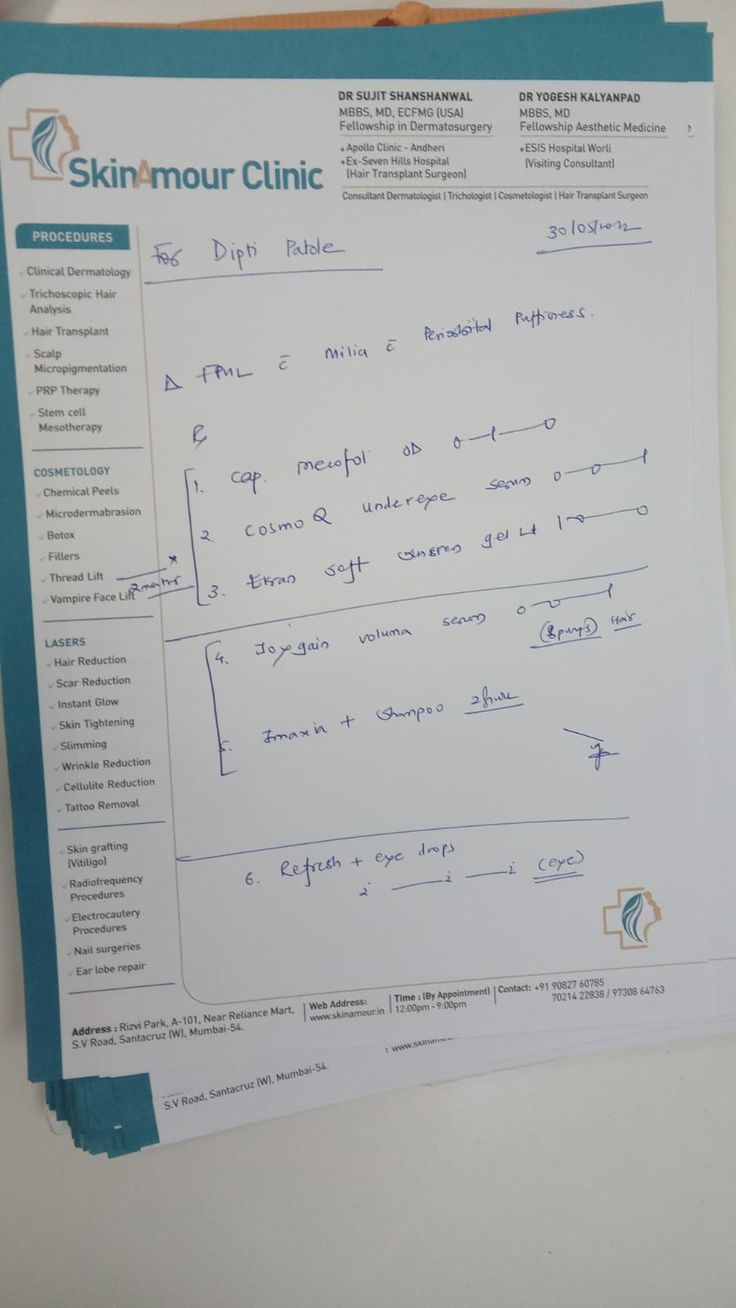 DR SUJIT SHANSHANWAL
MBBS, MD, ECFMG (USA)
Fellowship in Dermatosurgery
• Apollo Clinic - Andheri
• Ex-Seven Hills Hospital
(Hair Transplant Surgeon)
DR YOGESH KALYANPAD
MBBS, MD
Fellowship Aesthetic Medicine
• ESIS Hospital Worli
(Visiting Consultant)
Consultant Dermatologist | Trichologist | Cosmetologist | Hair Transplant Surgeon
SkinAmour Clinic
PROCEDURES
Clinical Dermatology
Trichoscopic Hair
Analysis
Hair Transplant
Scalp
Micropigmentation
PRP Therapy
Stem cell
Mesotherapy
COSMETOLOGY
Chemical Peels
Microdermabrasion
Botox
Fillers
Thread Lift
Vampire Face Lift
LASERS
Hair Reduction
Scar Reduction
Instant Glow
Skin Tightening
Slimming
Wrinkle Reduction
Cellulite Reduction
Tattoo Removal
Skin grafting
(Vitiligo)
Radiofrequency
Procedures
Electrocautery
Procedures
Nail surgeries
Ear lobe repair
For Dipti Patole
Milia c̄ Periorbital Puffiness.
℞
1. Cap. OD 0-1-0
2. Cosmo Q undereye serum 0-0-1
3. soft gel
2 months
4. voluma serum 0-0-1
Hair
5. + shampoo
6. Refresh + eye drops
(eye)
Address : Rizvi Park, A-101, Near Reliance Mart,
S.V Road, Santacruz (W), Mumbai-54.
Web Address:
www.skinamour.in
Time : (By Appointment)
12:00pm - 9:00pm
Contact: +91 90827 60785
70214 22838 / 97308 64763
S.V Road, Santacruz (W), Mumbai-54.